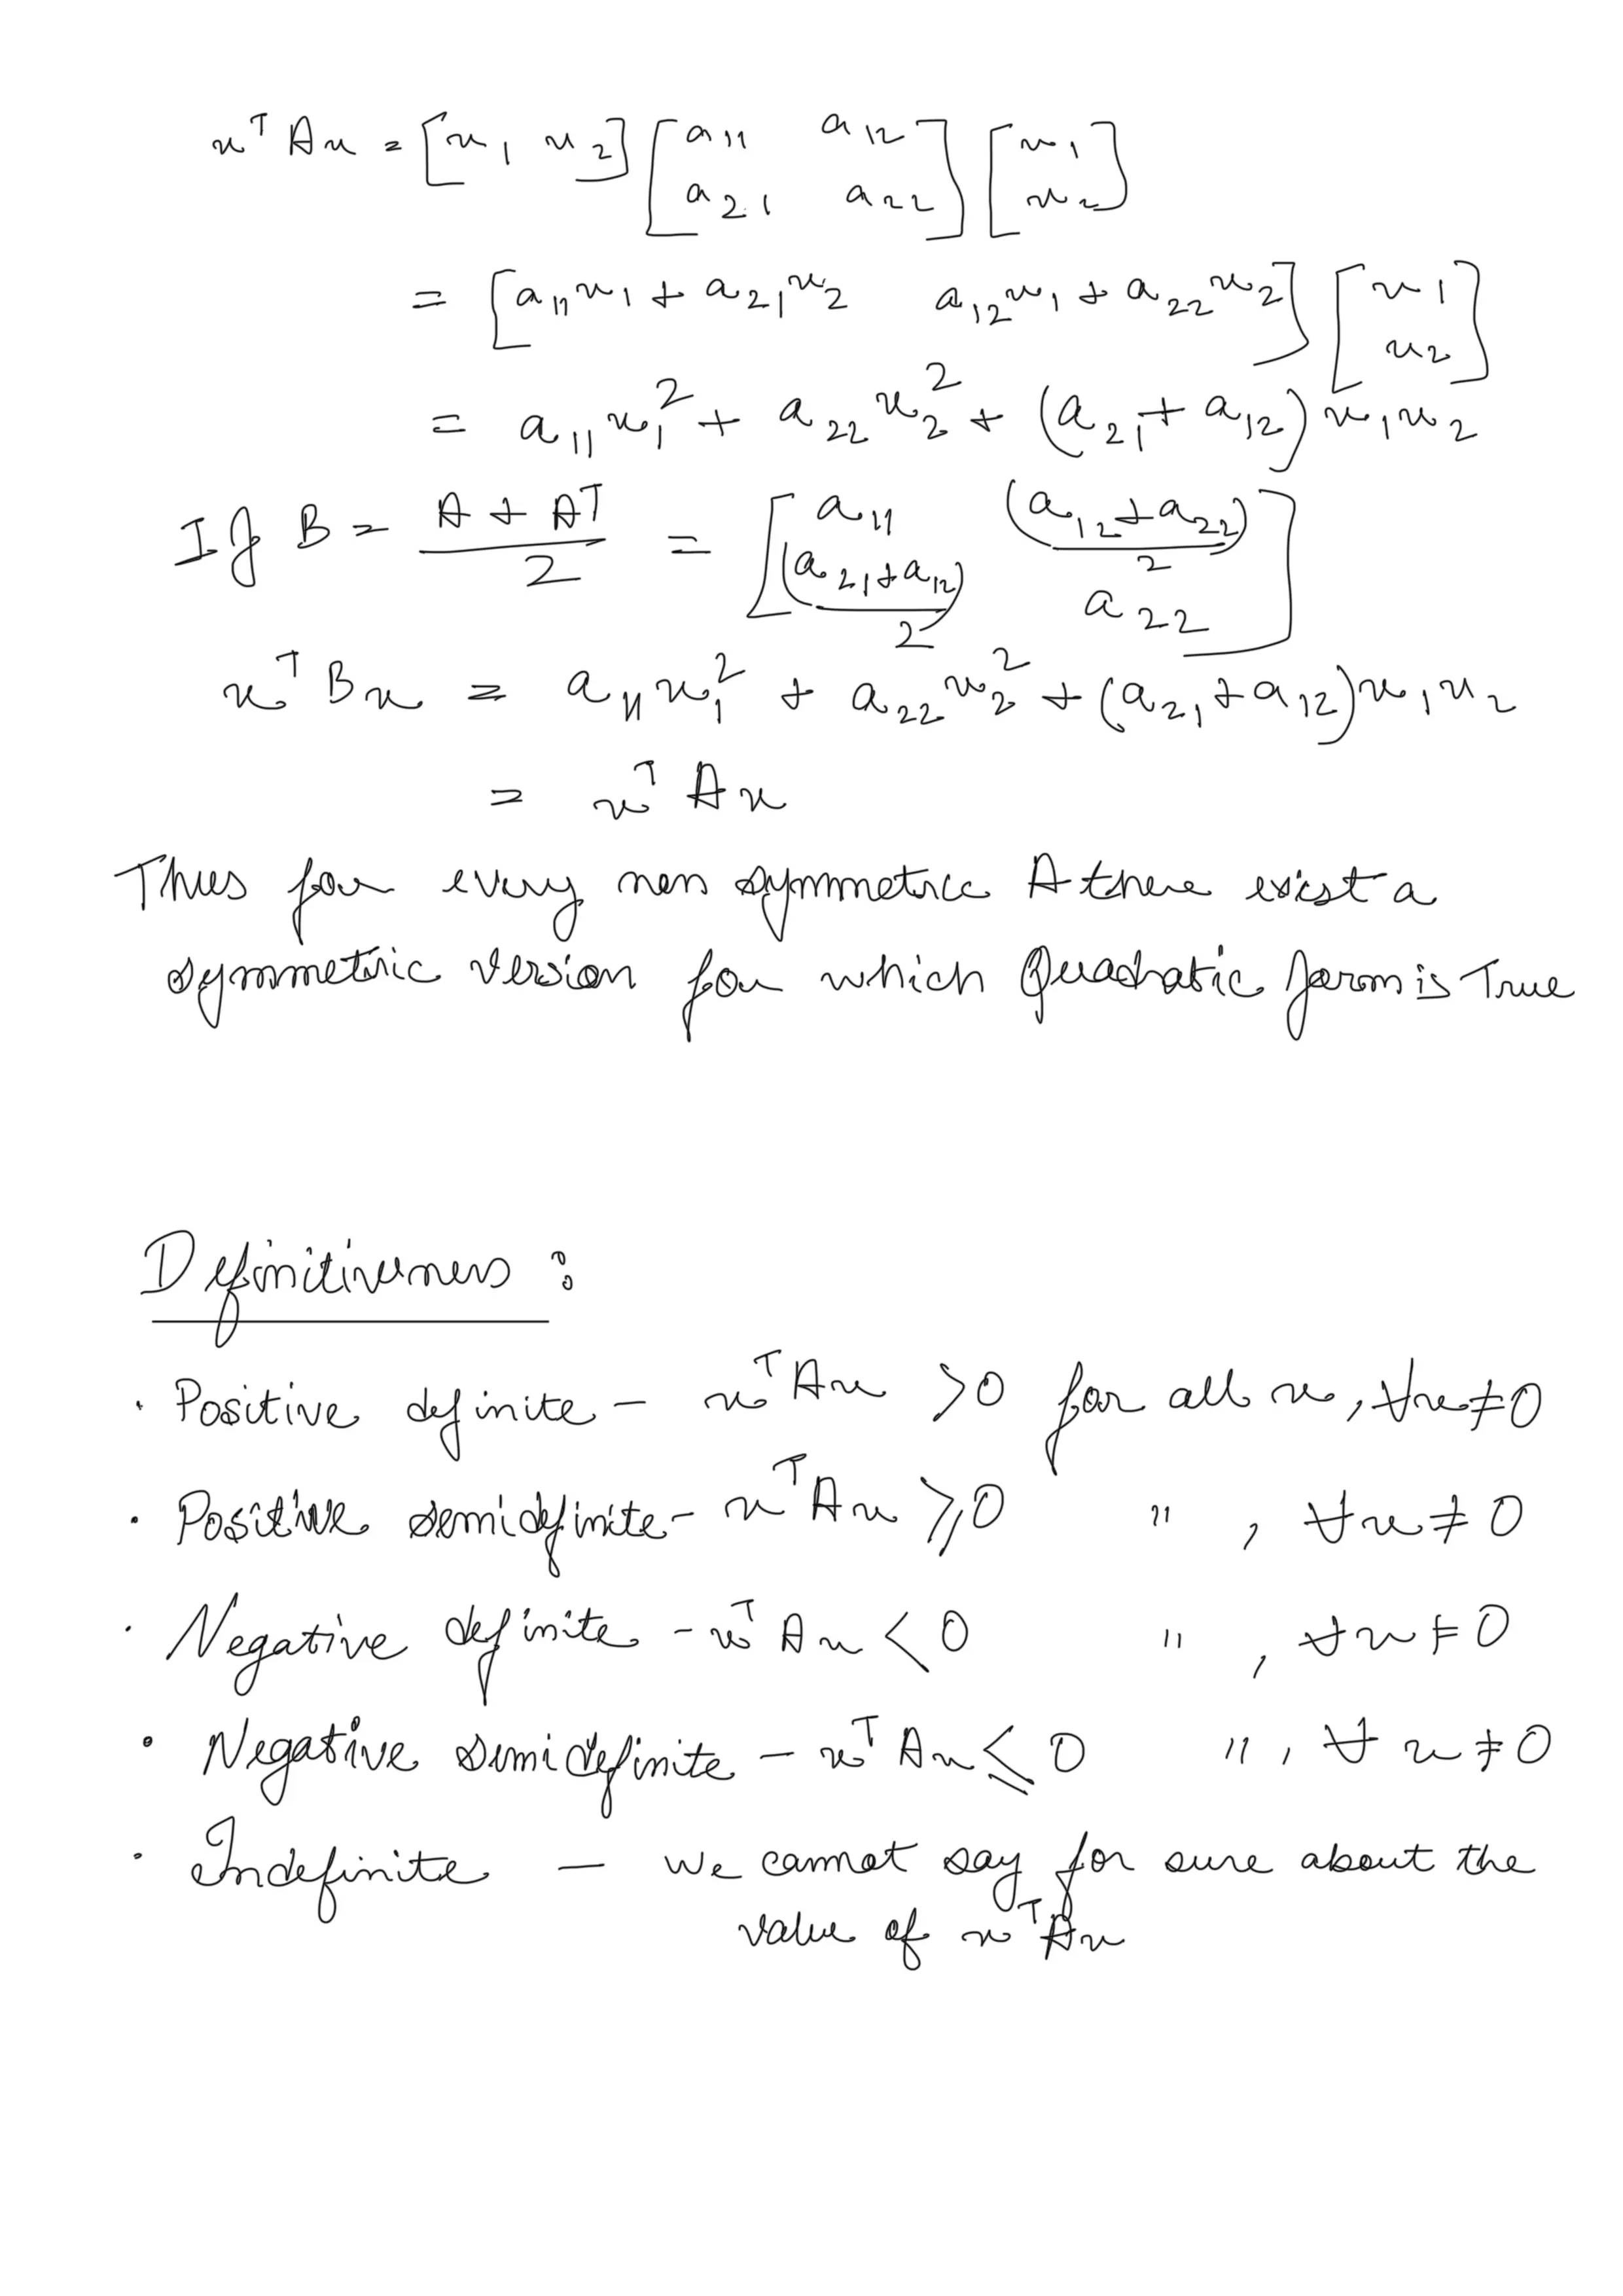 x^T A x = [x_1 x_2] [a_11 a_12; a_21 a_22] [x_1; x_2]
= [a_11 x_1 + a_21 x_2   a_12 x_1 + a_22 x_2] [x_1; x_2]
= a_11 x_1^2 + a_22 x_2^2 + (a_21 + a_12) x_1 x_2
If B = (A + A^T)/2 = [a_11 (a_12 + a_22)/2; (a_21 + a_12)/2 a_22]
x^T B x = a_11 x_1^2 + a_22 x_2^2 + (a_21 + a_12) x_1 x_2
= x^T A x
Thus for every non symmetric A there exist a
symmetric version for which Quadratic form is True
Definitiveness :
· Positive definite - x^T A x > 0 for all x, ∀x ≠ 0
· Positive semidefinite - x^T A x ≥ 0 " , ∀x ≠ 0
· Negative definite - x^T A x < 0 " , ∀x ≠ 0
· Negative semidefinite - x^T A x ≤ 0 " , ∀ x ≠ 0
· Indefinite - we cannot say for sure about the
value of x^T A x